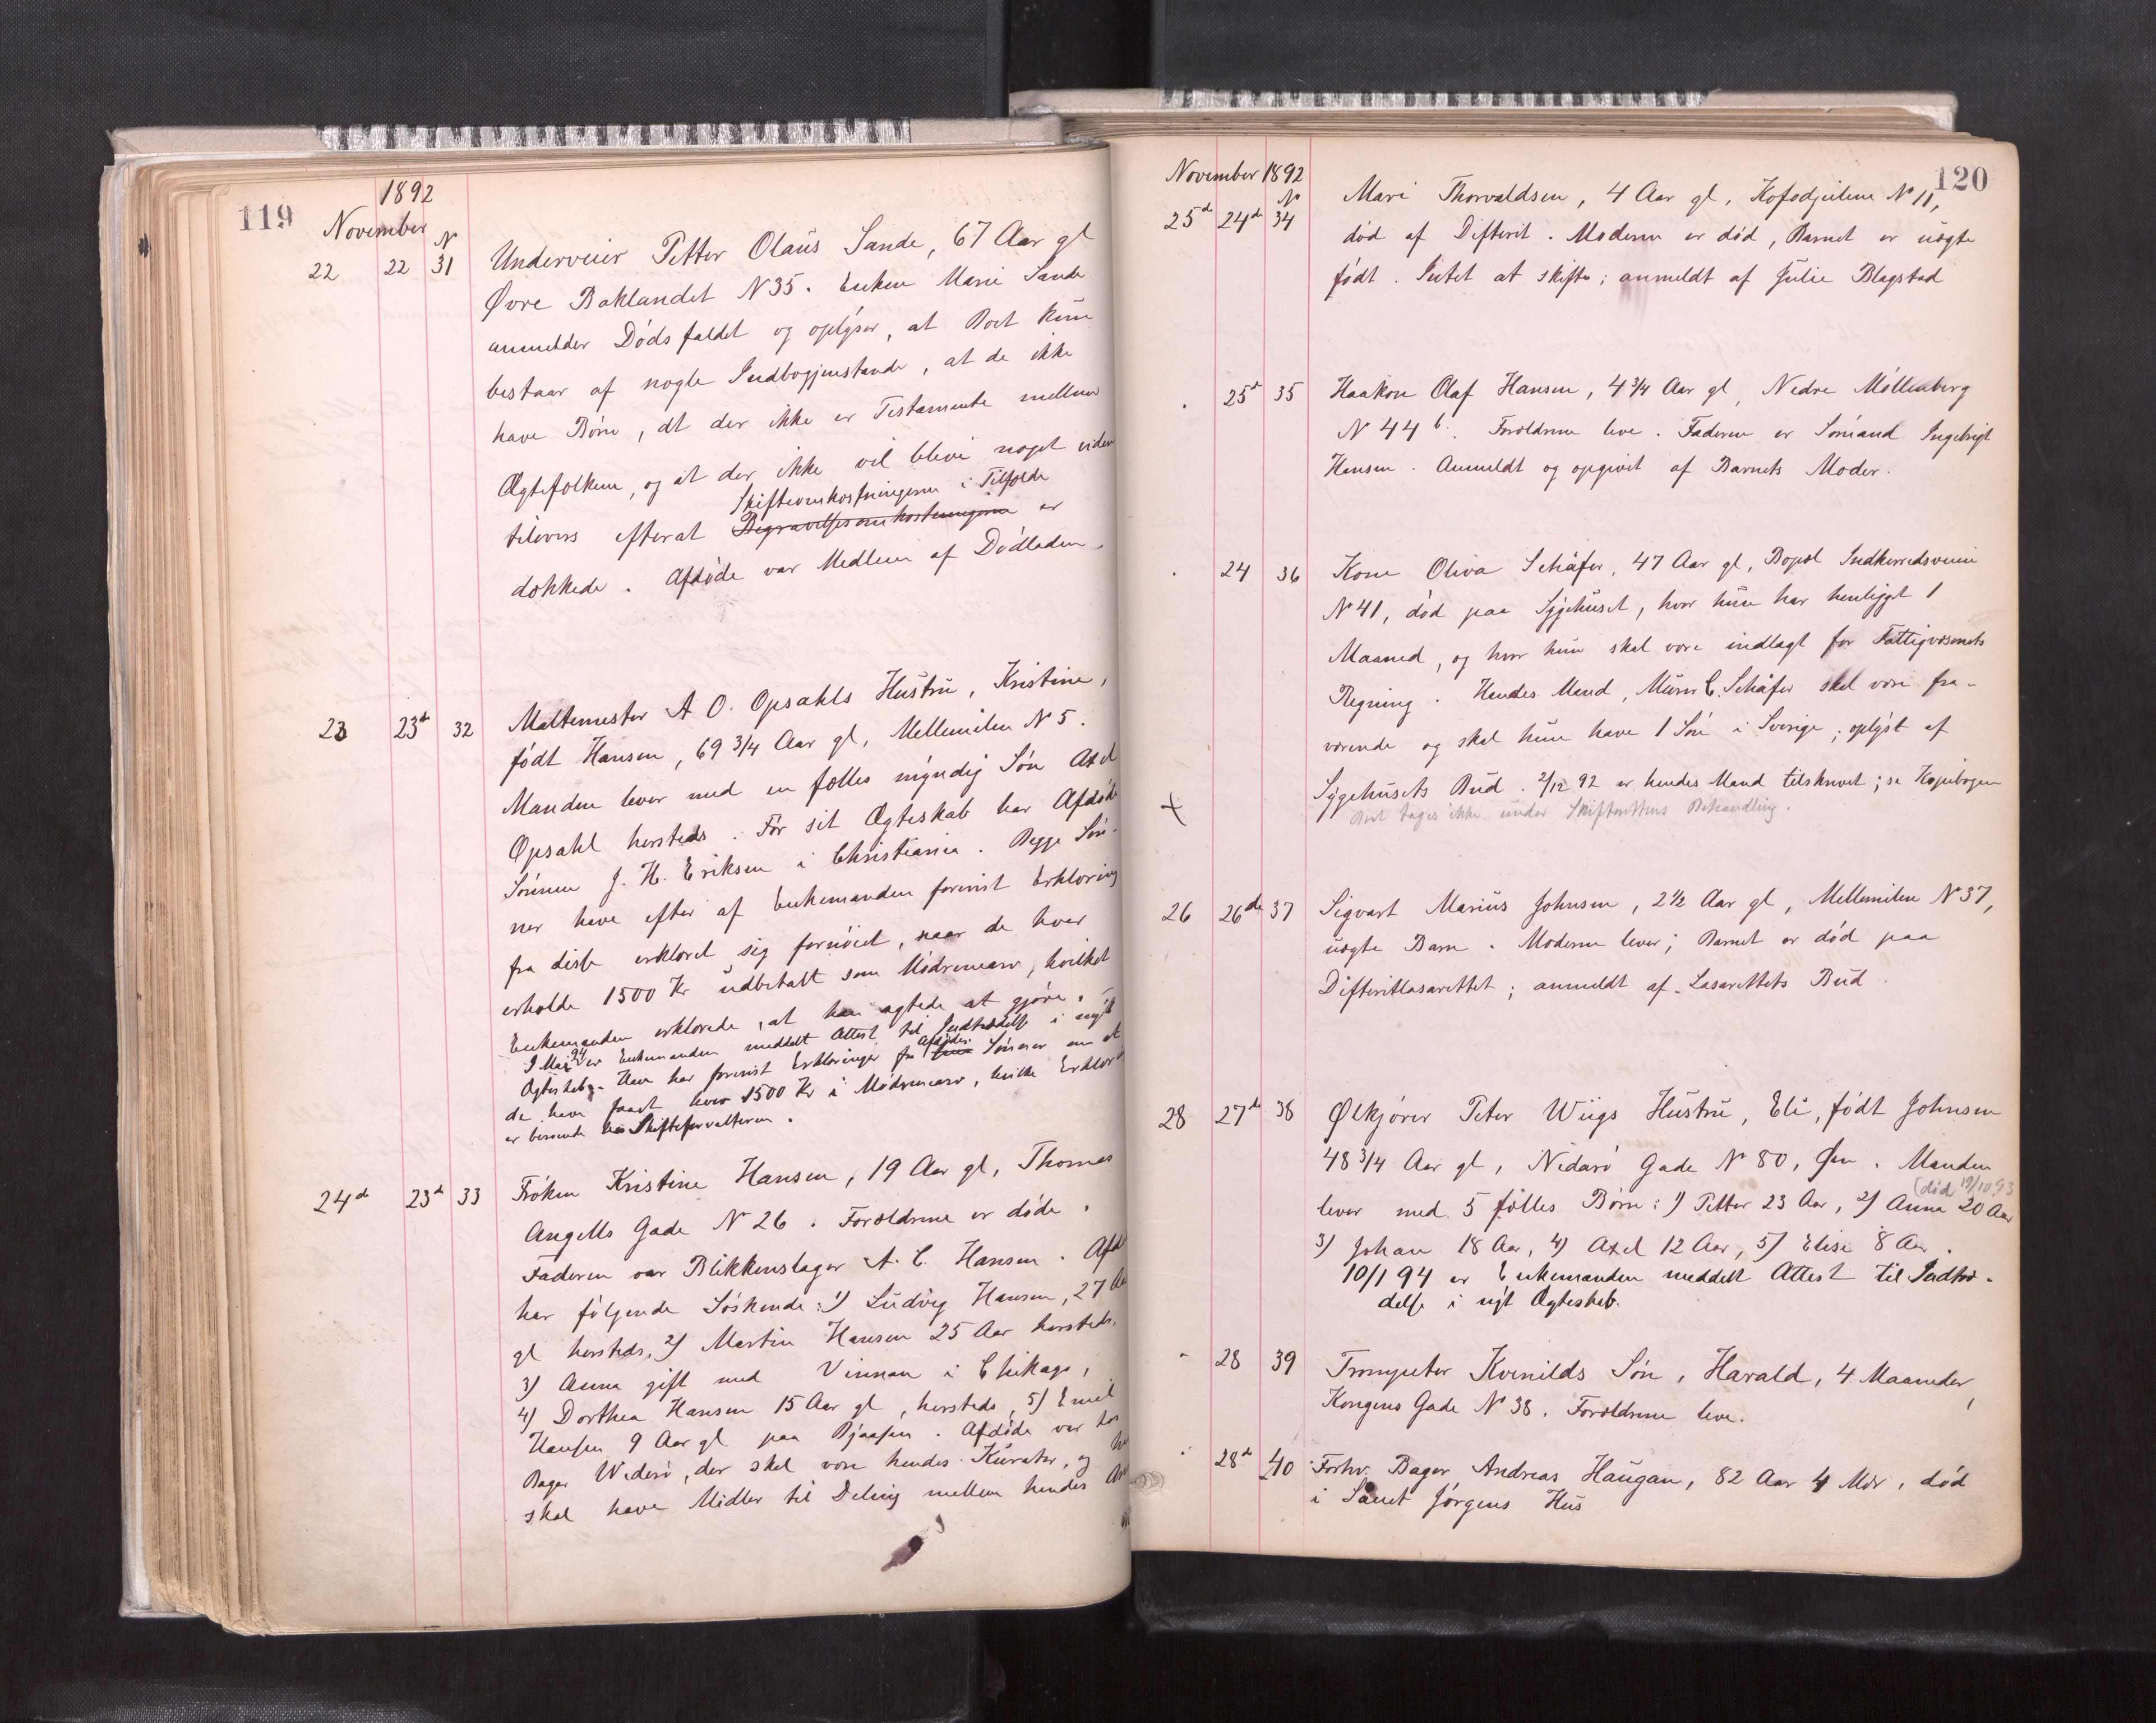 119
1892
November
N
22 22 31 Underveier Petter Olaus Sande, 67 Aar gl
Øvre Baklandet N 35. Enken Marie Sande
anmelder Dødsfaldet og oplyser, at Boet kun
bestaar af nogle Indbogjenstande, at de ikke
have Børn, at der ikke er Testamente mellem
Ægtefolkene, og at der ikke vil blive noget videre
Skifteomkostningerne i Tilfælde
tilovers efterat Begravelsesomkostningerne er
dækkede. Afdøde var Medlem af Dødladen.
23 23d 32 Maltemester A. O. Opsahls Hustru, Kristine,
født Hansen, 69 3/4 Aar gl, Mellemilen N 5.
Manden lever med en fælles myndig Søn Axel
Opsahl hersteds. Før sit Ægteskab har Afdøde
Sønnen J. H. Eriksen i Christiania. Begge Søn-
ner have efter af Enkemanden forevist Erklæring
fra disse erklæret sig fornøiet, naar de hver
erholde 1500 Kr udbetalt som Mødrenearv, hvilket
Enkemanden erklærede, at han agtede at gjøre. -
I Mai 94 er Enkemanden meddelt Attest til Indtrædelse i nyt
Ægteskab. Han har forevist Erklæringer fra Afdødes Sønner om at
de have faaet hver 1500 Kr i Mødrenearv, hvilke Erklær
er beroende hos Skifteforvalteren.
24d 23d 33 Frøken Kristine Hansen, 19 Aar gl, Thomas
Angells Gade N 26. Forældrene er døde.
Faderen var Blikkenslager A. C. Hansen. Afd
har følgende Søskende: 1) Ludvig Hansen, 27 Aa
gl hersteds, 2) Martin Hansen 25 Aar hersteds.
3) Anna gift med Vinnan i Chikago,
4) Dorthea Hansen 15 Aar gl, hersteds, 5) Emil
Hansen 9 Aar gl paa Bjaasen. Afdøde var hos
Bager Widerø, der skal være hendes Kurator, og h
skal have Midler til Deling mellem hendes Ar
120
November 1892
N
25d 24d 34 Mari Thorvaldsen, 4 Aar gl, Kofodgeilene N 11,
død af Difterit. Moderen er død, Barnet er uægte
født. Intet at skifte; anmeldt af Julie Blagstad
. 25d 35 Haakon Olaf Hansen, 4 3/4 Aar gl, Nedre Møllenberg
N 44 b. Forældrene leve. Faderen er Sømand Ingebrigt
Hansen. Anmeldt og opgivet af Barnets Moder.
. 24 36 Kone Oliva Schäfer, 47 Aar gl, Bopæl Indherredsveien
N 41, død paa Sygehuset, hvor hun har henligget 1
Maaned, og hvor hun skal være indlagt for Fattigvæsenets
Regning. Hendes Mand, Murer C. Schäfer skal være fra-
værende og skal hun have 1 Søn i Sverige; oplyst af
Sygehusets Bud. 2/12 92 er hendes Mand tilskrevet; se Kopibogen
+ Boet tages ikke under Skifterettens Behandling.
26 26de 37 Sigvart Marius Johnsen, 2 1/2 Aar gl, Mellemilen N 37,
uægte Barn. Moderen lever; Barnet er død paa
Difteritlasarettet; anmeldt af Lasarettets Bud.
28 27d 38 Ølkjører Peter Wiigs Hustru, Eli, født Johnsen
48 3/4 Aar gl, Nidarø Gade N 80, Øen. Manden
(død 19/10 93
lever med 5 fælles Børn: 1) Petter 23 Aar, 2) Anna 20 Aar
3) Johan 18 Aar, 4) Axel 12 Aar, 5) Elise 8 Aar.
10/1 94 er Enkemanden meddelt Attest til Indtræ-
delse i nyt Ægteskab.
- 28 39 Trompeter Kvenilds Søn, Harald, 4 Maaneder,
Kongens Gade N 38. Forældrene leve.
. 28d 40 Forhv. Bager Andreas Haugan, 82 Aar 4 Mdr, død
i Sanct Jørgens Hus